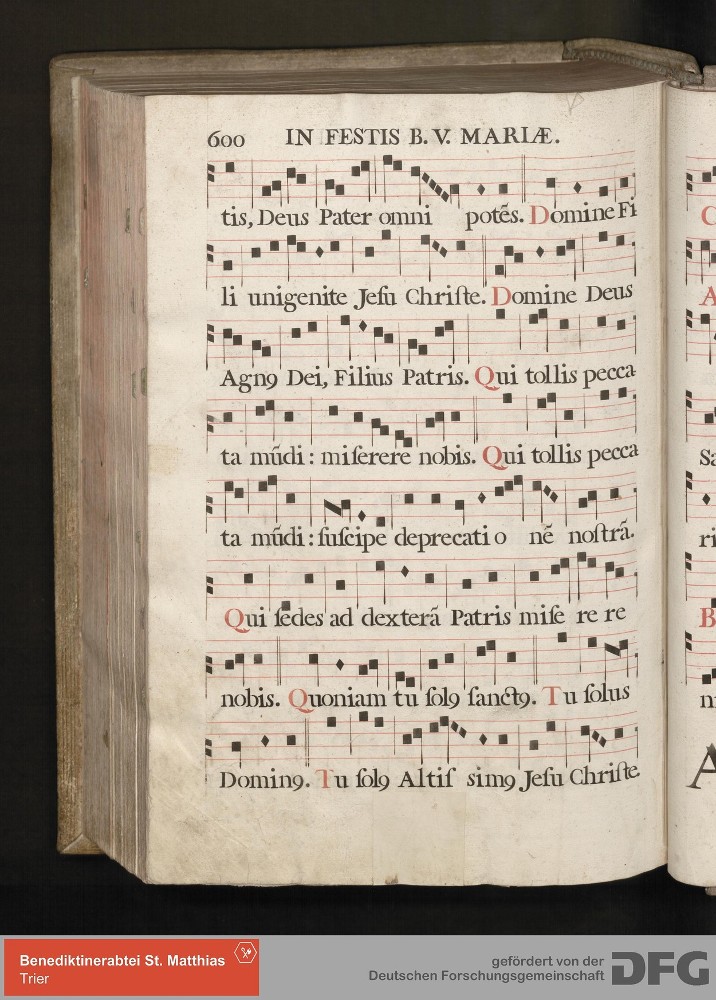 600 IN FESTIS B. V. MARIÆ.
tis, Deus Pater omni potẽs. Domine Fi
li unigenite Jeſu Chriſte. Domine Deus
Agnꝰ Dei, Filius Patris. Qui tollis pecca
ta mũdi: miſerere nobis. Qui tollis pecca
ta mũdi: ſuſcipe deprecati o nẽ noſtrã.
Qui ſedes ad dexterã Patris miſe re re
nobis. Quoniam tu ſolꝰ ſanctꝰ. Tu ſolus
Dominꝰ. Tu ſolꝰ Altiſ simꝰ Jeſu Chriſte
C
A
Sa
ri
B
n
A
Benediktinerabtei St. Matthias
Trier
gefördert von der
Deutschen Forschungsgemeinschaft
DFG